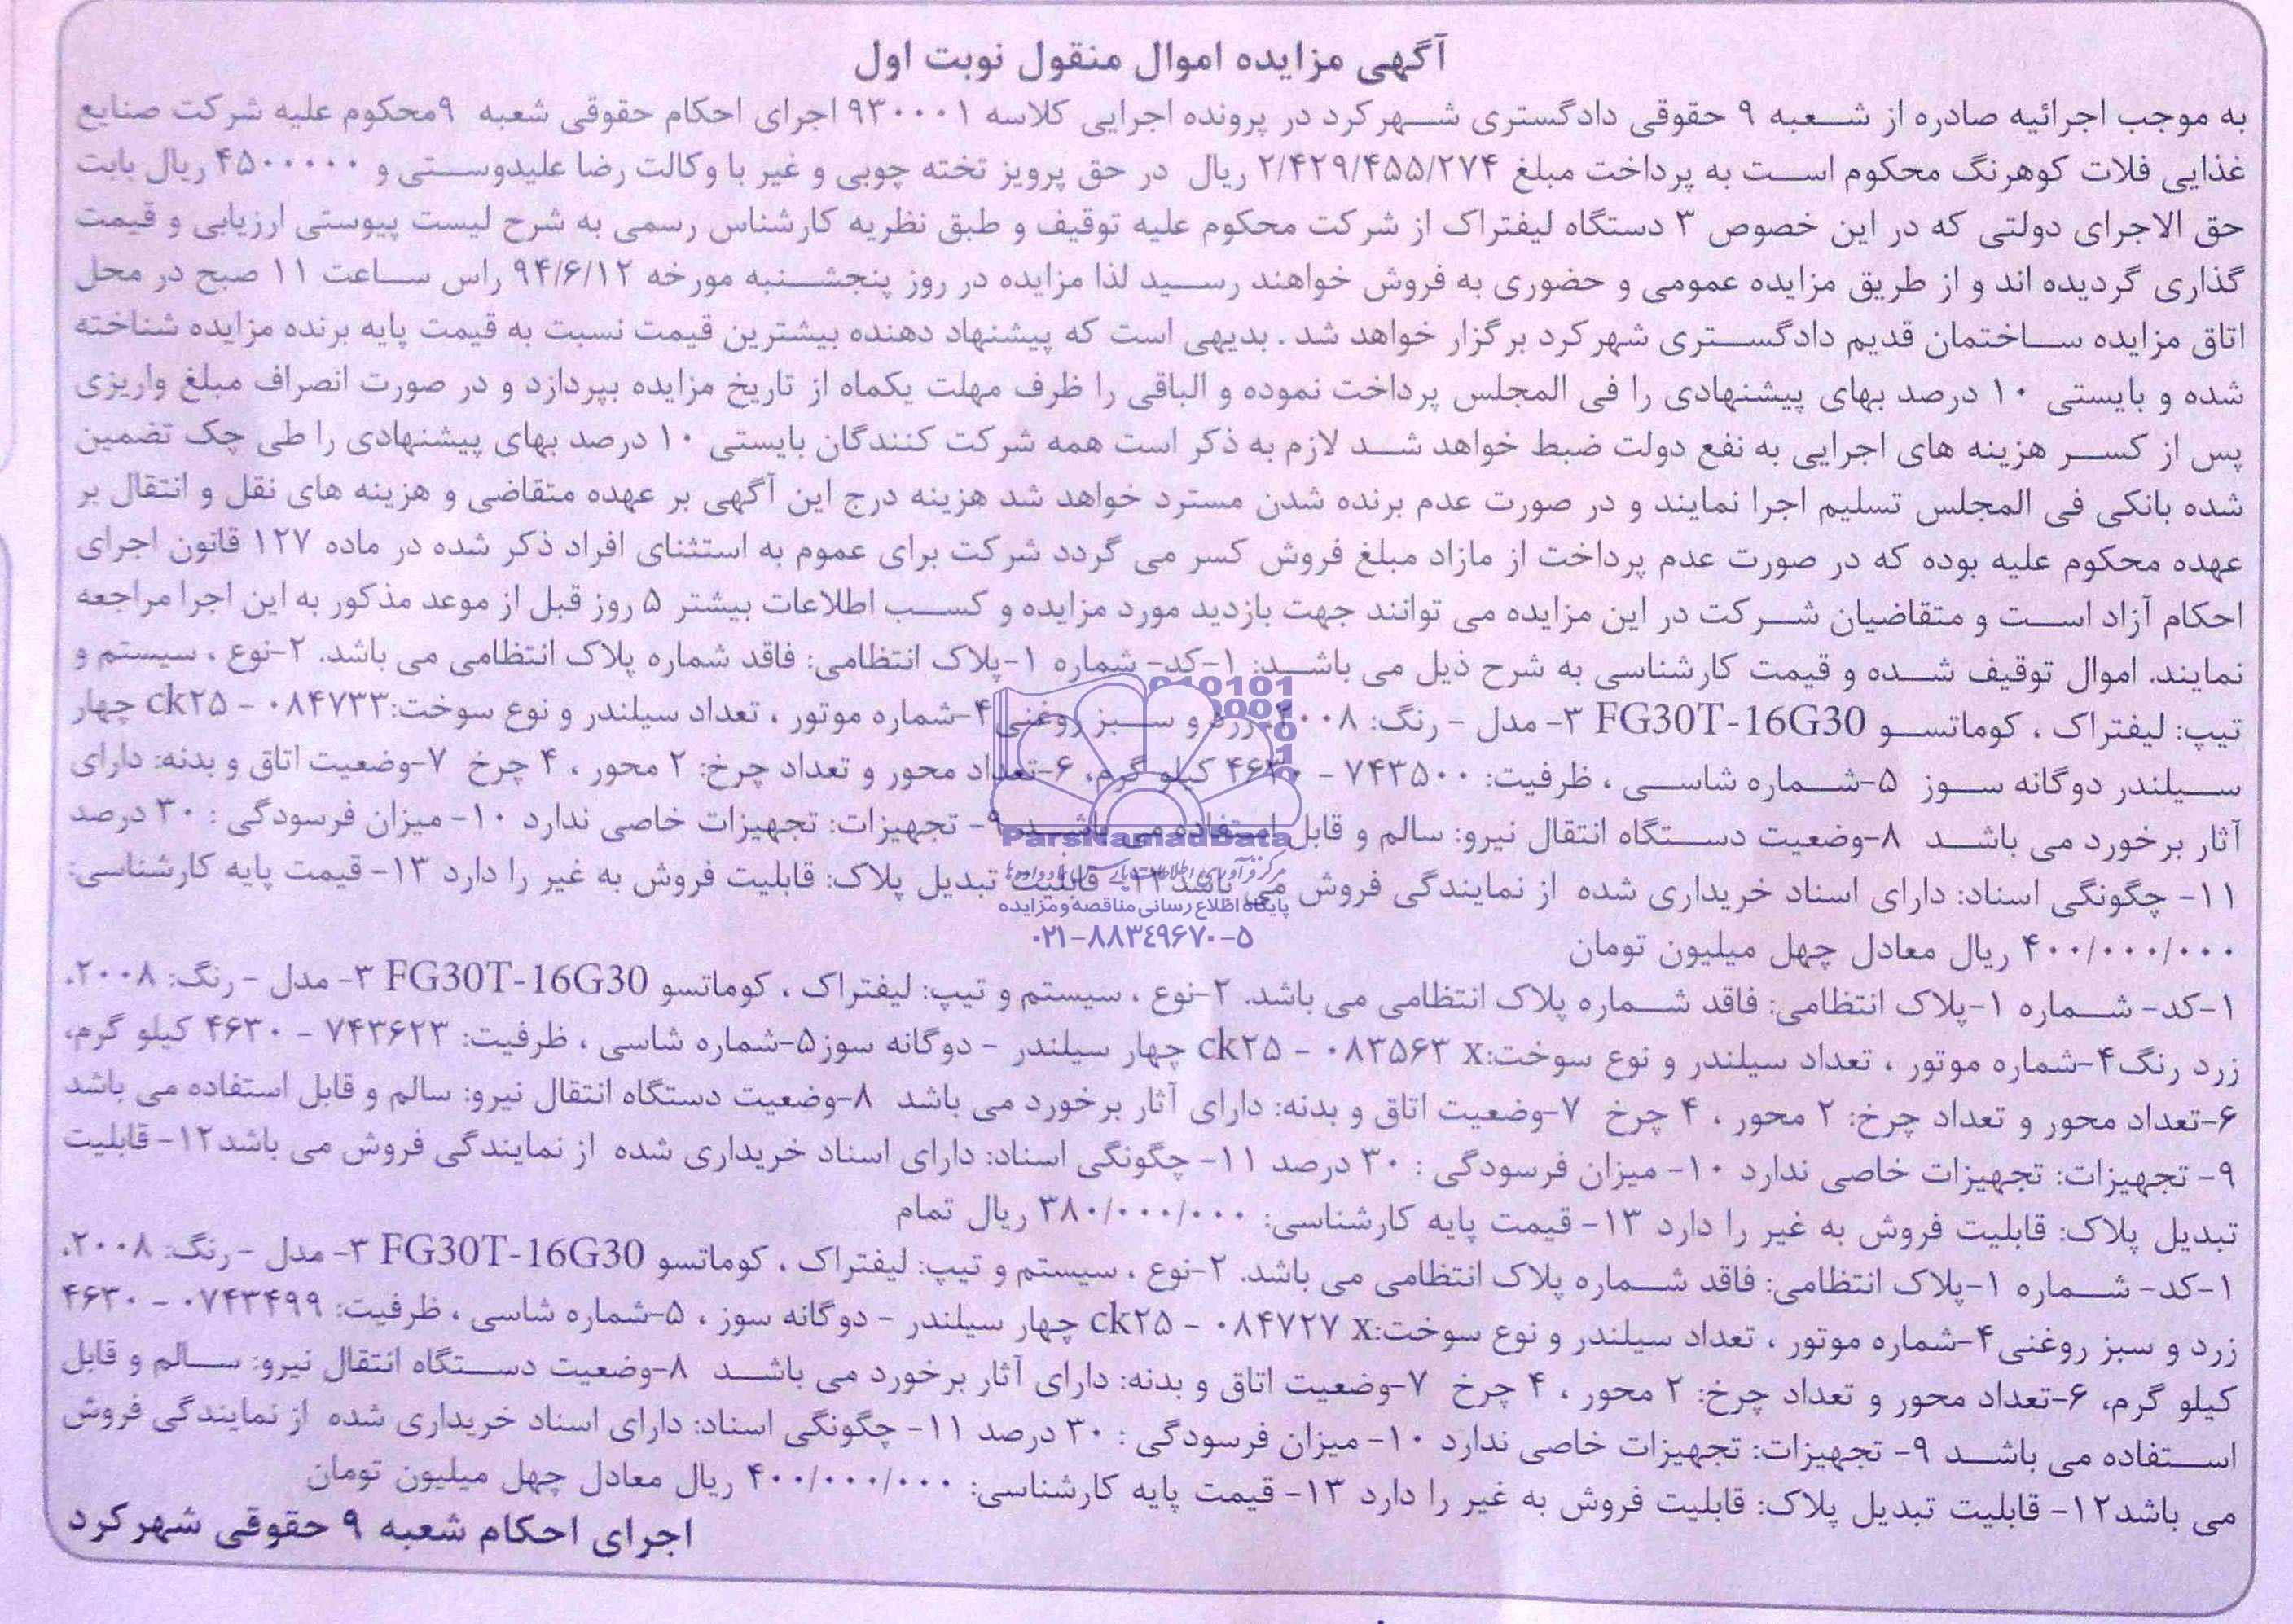 آگهی مزایده اموال منقول نوبت اول
به موجب اجرائیه صادره از شعبه ۹ حقوقی دادگستری شهرکرد در پرونده اجرایی کلاسه ۹۳۰۰۰۱ اجرای احکام حقوقی شعبه ۹محکوم علیه شرکت صنایع
غذایی فلات کوهرنگ محکوم است به پرداخت مبلغ ۲/۴۲۹/۴۵۵/۲۷۴ ریال در حق پرویز تخته چوبی و غیر با وکالت رضا علیدوستی و ۴۵۰۰۰۰۰ ریال بابت
حق الاجرای دولتی که در این خصوص ۳ دستگاه لیفتراک از شرکت محکوم علیه توقیف و طبق نظریه کارشناس رسمی به شرح لیست پیوستی ارزیابی و قیمت
گذاری گردیده اند و از طریق مزایده عمومی و حضوری به فروش خواهند رسید لذا مزایده در روز پنجشنبه مورخه ۹۴/۶/۱۲ راس ساعت ۱۱ صبح در محل
اتاق مزایده ساختمان قدیم دادگستری شهرکرد برگزار خواهد شد . بدیهی است که پیشنهاد دهنده بیشترین قیمت نسبت به قیمت پایه برنده مزایده شناخته
شده و بایستی ۱۰ درصد بهای پیشنهادی را فی المجلس پرداخت نموده و الباقی را ظرف مهلت یکماه از تاریخ مزایده بپردازد و در صورت انصراف مبلغ واریزی
پس از کسر هزینه های اجرایی به نفع دولت ضبط خواهد شد لازم به ذکر است همه شرکت کنندگان بایستی ۱۰ درصد بهای پیشنهادی را طی چک تضمین
شده بانکی فی المجلس تسلیم اجرا نمایند و در صورت عدم برنده شدن مسترد خواهد شد هزینه درج این آگهی بر عهده متقاضی و هزینه های نقل و انتقال بر
عهده محکوم علیه بوده که در صورت عدم پرداخت از مازاد مبلغ فروش کسر می گردد شرکت برای عموم به استثنای افراد ذکر شده در ماده ۱۲۷ قانون اجرای
احکام آزاد است و متقاضیان شرکت در این مزایده می توانند جهت بازدید مورد مزایده و کسب اطلاعات بیشتر ۵ روز قبل از موعد مذکور به این اجرا مراجعه
نمایند. اموال توقیف شده و قیمت کارشناسی به شرح ذیل می باشد: ۱-کد- شماره ۱-پلاک انتظامی: فاقد شماره پلاک انتظامی می باشد. ۲-نوع ، سیستم و
تیپ: لیفتراک ، کوماتسو FG30T-16G30 ۳- مدل - رنگ: ۲۰۰۸- زرد و سبز روغنی۴-شماره موتور ، تعداد سیلندر و نوع سوخت:۰۸۴۷۳۳ - ck۲۵ چهار
سیلندر دوگانه سوز ۵-شماره شاسی ، ظرفیت: ۷۴۳۵۰۰ - ۴۶۳۰ کیلو گرم، ۶-تعداد محور و تعداد چرخ: ۲ محور ، ۴ چرخ ۷-وضعیت اتاق و بدنه: دارای
آثار برخورد می باشد ۸-وضعیت دستگاه انتقال نیرو: سالم و قابل استفاده می باشد ۹- تجهیزات: تجهیزات خاصی ندارد ۱۰- میزان فرسودگی : ۳۰ درصد
۱۱- چگونگی اسناد: دارای اسناد خریداری شده از نمایندگی فروش می باشد۱۲- قابلیت تبدیل پلاک: قابلیت فروش به غیر را دارد ۱۳- قیمت پایه کارشناسی:
۴۰۰/۰۰۰/۰۰۰ ریال معادل چهل میلیون تومان
۱-کد- شماره ۱-پلاک انتظامی: فاقد شماره پلاک انتظامی می باشد. ۲-نوع ، سیستم و تیپ: لیفتراک ، کوماتسو FG30T-16G30 ۳- مدل - رنگ: ۲۰۰۸.
زرد رنگ۴-شماره موتور ، تعداد سیلندر و نوع سوخت:ck۲۵ - ۰۸۳۵۶۳ x چهار سیلندر - دوگانه سوز۵-شماره شاسی ، ظرفیت: ۷۴۳۶۲۳ - ۴۶۳۰ کیلو گرم،
۶-تعداد محور و تعداد چرخ: ۲ محور ، ۴ چرخ ۷-وضعیت اتاق و بدنه: دارای آثار برخورد می باشد ۸-وضعیت دستگاه انتقال نیرو: سالم و قابل استفاده می باشد
۹- تجهیزات: تجهیزات خاصی ندارد ۱۰- میزان فرسودگی : ۳۰ درصد ۱۱- چگونگی اسناد: دارای اسناد خریداری شده از نمایندگی فروش می باشد۱۲- قابلیت
تبدیل پلاک: قابلیت فروش به غیر را دارد ۱۳- قیمت پایه کارشناسی: ۳۸۰/۰۰۰/۰۰۰ ریال تمام
۱-کد- شماره ۱-پلاک انتظامی: فاقد شماره پلاک انتظامی می باشد. ۲-نوع ، سیستم و تیپ: لیفتراک ، کوماتسو FG30T-16G30 ۳- مدل - رنگ: ۲۰۰۸.
زرد و سبز روغنی۴-شماره موتور ، تعداد سیلندر و نوع سوخت:ck۲۵ - ۰۸۴۷۲۷ x چهار سیلندر - دوگانه سوز ، ۵-شماره شاسی ، ظرفیت: ۰۷۴۳۴۹۹ - ۴۶۳۰
کیلو گرم، ۶-تعداد محور و تعداد چرخ: ۲ محور ، ۴ چرخ ۷-وضعیت اتاق و بدنه: دارای آثار برخورد می باشد ۸-وضعیت دستگاه انتقال نیرو: سالم و قابل
استفاده می باشد ۹- تجهیزات: تجهیزات خاصی ندارد ۱۰- میزان فرسودگی : ۳۰ درصد ۱۱- چگونگی اسناد: دارای اسناد خریداری شده از نمایندگی فروش
می باشد۱۲- قابلیت تبدیل پلاک: قابلیت فروش به غیر را دارد ۱۳- قیمت پایه کارشناسی: ۴۰۰/۰۰۰/۰۰۰ ریال معادل چهل میلیون تومان
اجرای احکام شعبه ۹ حقوقی شهرکرد
ParsNamadData
پایگاه اطلاع رسانی مناقصه و مزایده
۰۲۱-۸۸۳۴۹۶۷۰-۵